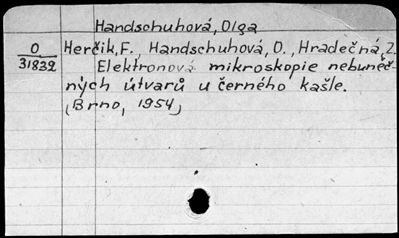 Handschuhová, Olga
O
31832
Herčik, F., Handschuhová, O., Hradečná, Z.
Elektronová mikroskopie nebuněč-
ných útvarů u černého kašle.
(Brno, 1954)